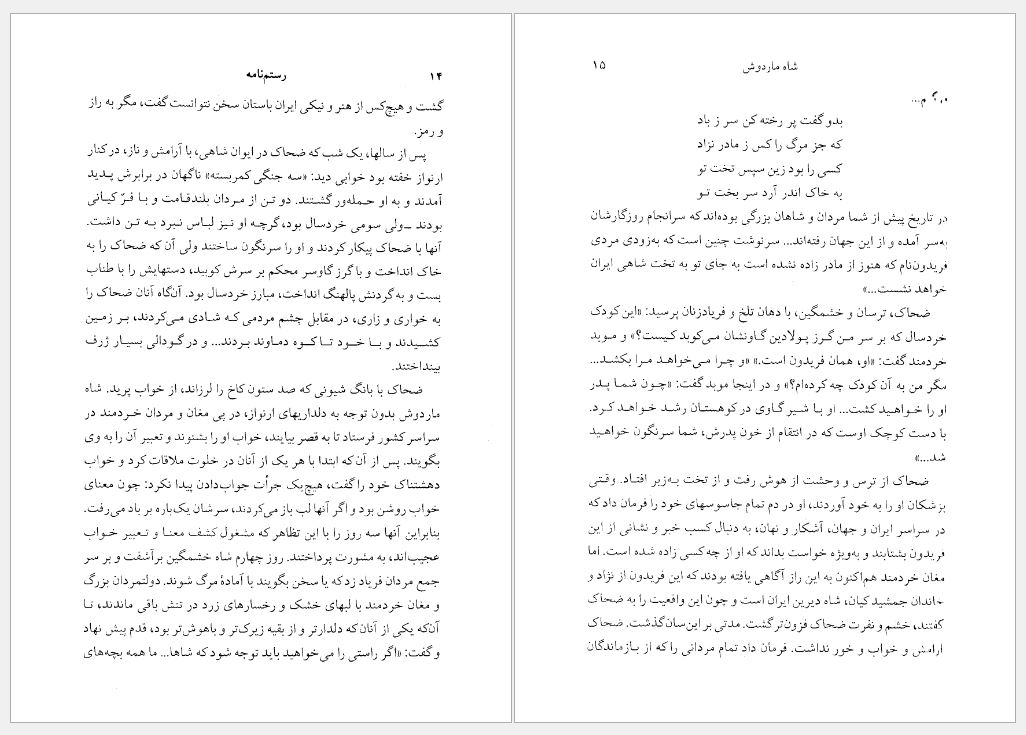 ۱۴
رستم‌نامه
گشت و هیچ‌کس از هنر و نیکی ایران باستان سخن نتوانست گفت، مگر به راز
و رمز.
پس از سالها، یک شب که ضحاک در ایوان شاهی، با آرامش و ناز، در کنار
ارنواز خفته بود خوابی دید: «سه جنگی کمربسته» ناگهان در برابرش پدید
آمدند و به او حمله‌ور گشتند. دو تن از مردان بلندقامت و با فرّ کیانی
بودند ــ ولی سومی خردسال بود، گرچه او نیز لباس نبرد به تن داشت.
آنها با ضحاک پیکار کردند و او را سرنگون ساختند ولی آن که ضحاک را به
خاک انداخت و با گرز گاوسر محکم بر سرش کوبید، دستهایش را با طناب
بست و به گردنش پالهنگ انداخت، مبارز خردسال بود. آن‌گاه آنان ضحاک را
به خواری و زاری، در مقابل چشم مردمی که شادی می‌کردند، بر زمین
کشیدند و با خود تا کوه دماوند بردند... و در گودالی بسیار ژرف
بینداختند.
ضحاک با بانگ شیونی که صد ستون کاخ را لرزاند، از خواب پرید. شاه
ماردوش بدون توجه به دلداریهای ارنواز، در پی مغان و مردان خردمند در
سراسر کشور فرستاد تا به قصر بیایند، خواب او را بشنوند و تعبیر آن را به وی
بگویند. پس از آن‌که ابتدا با هر یک از آنان در خلوت ملاقات کرد و خواب
دهشتناک خود را گفت، هیچ‌یک جرأت جواب‌دادن پیدا نکرد: چون معنای
خواب روشن بود و اگر آنها لب باز می‌کردند، سرشان یک‌باره بر باد می‌رفت.
بنابراین آنها سه روز را با این تظاهر که مشغول کشف معنا و تعبیر خواب
عجیب‌اند، به مشورت پرداختند. روز چهارم شاه خشمگین برآشفت و بر سر
جمع مردان فریاد زد که یا سخن بگویند یا آمادهٔ مرگ شوند. دولتمردان بزرگ
و مغان خردمند با لبهای خشک و رخسارهای زرد در تنش باقی ماندند، تا
آن‌که یکی از آنان که دلدارتر و از بقیه زیرک‌تر و باهوش‌تر بود، قدم پیش نهاد
و گفت: «اگر راستی را می‌خواهید باید توجه شود که شاها... ما همه بچه‌های
شاه ماردوش
۱۵
بدو گفت پر رخته کن سر ز باد
که جز مرگ را کس ز مادر نزاد
کسی را بود زین سپس تخت تو
به خاک اندر آرد سر بخت تو
در تاریخ پیش از شما مردان و شاهان بزرگی بوده‌اند که سرانجام روزگارشان
به‌سر آمده و از این جهان رفته‌اند... سرنوشت چنین است که به‌زودی مردی
فریدون‌نام که هنوز از مادر زاده نشده است به جای تو به تخت شاهی ایران
خواهد نشست...»
ضحاک، ترسان و خشمگین، با دهان تلخ و فریادزنان پرسید: «این کودک
خردسال که بر سر من گرز پولادین گاونشان می‌کوبد کیست؟» و موبد
خردمند گفت: «او، همان فریدون است.» «و چرا می‌خواهد مرا بکشد...
مگر من به آن کودک چه کرده‌ام؟» و در اینجا موبد گفت: «چون شما پدر
او را خواهید کشت... او با شیر گاوی در کوهستان رشد خواهد کرد.
با دست کوچک اوست که در انتقام از خون پدرش، شما سرنگون خواهید
شد...»
ضحاک از ترس و وحشت از هوش رفت و از تخت به‌زیر افتاد. وقتی
پزشکان او را به خود آوردند، او در دم تمام جاسوسهای خود را فرمان داد که
در سراسر ایران و جهان، آشکار و نهان، به دنبال کسب خبر و نشانی از این
فریدون بشتابند و به‌ویژه خواست بداند که او از چه کسی زاده شده است. اما
مغان خردمند هم‌اکنون به این راز آگاهی یافته بودند که این فریدون از نژاد و
خاندان جمشید کیان، شاه دیرین ایران است و چون این واقعیت را به ضحاک
گفتند، خشم و نفرت ضحاک فزون‌تر گشت. مدتی بر این‌سان گذشت. ضحاک
آرامش و خواب و خور نداشت. فرمان داد تمام مردانی را که از بازماندگان